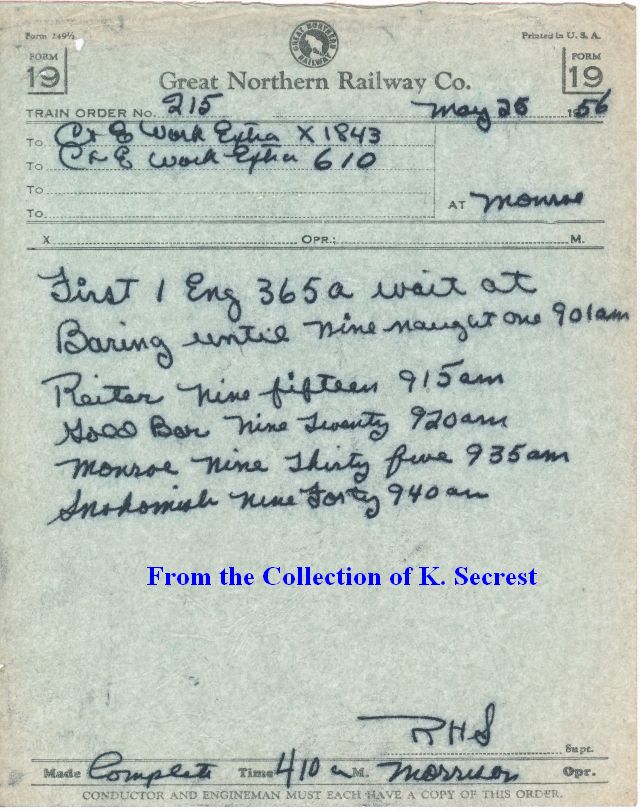 Form 249½
Printed in U. S. A.
GREAT NORTHERN RAILWAY
FORM 19
FORM 19
Great Northern Railway Co.
TRAIN ORDER No. 215 May 25 1956
To C & E Work Extra X1843
To C & E Work Extra 610
To
To
AT Monroe
X OPR.: M.
First 1 Eng 365a wait at
Baring until nine naught one 901am
Reiter nine fifteen 915am
Gold Bar nine Twenty 920am
Monroe nine Thirty five 935am
Snohomish nine Forty 940am
From the Collection of K. Secrest
RHS
Supt.
Made Complete Time 410 a M. Morrison Opr.
CONDUCTOR AND ENGINEMAN MUST EACH HAVE A COPY OF THIS ORDER.